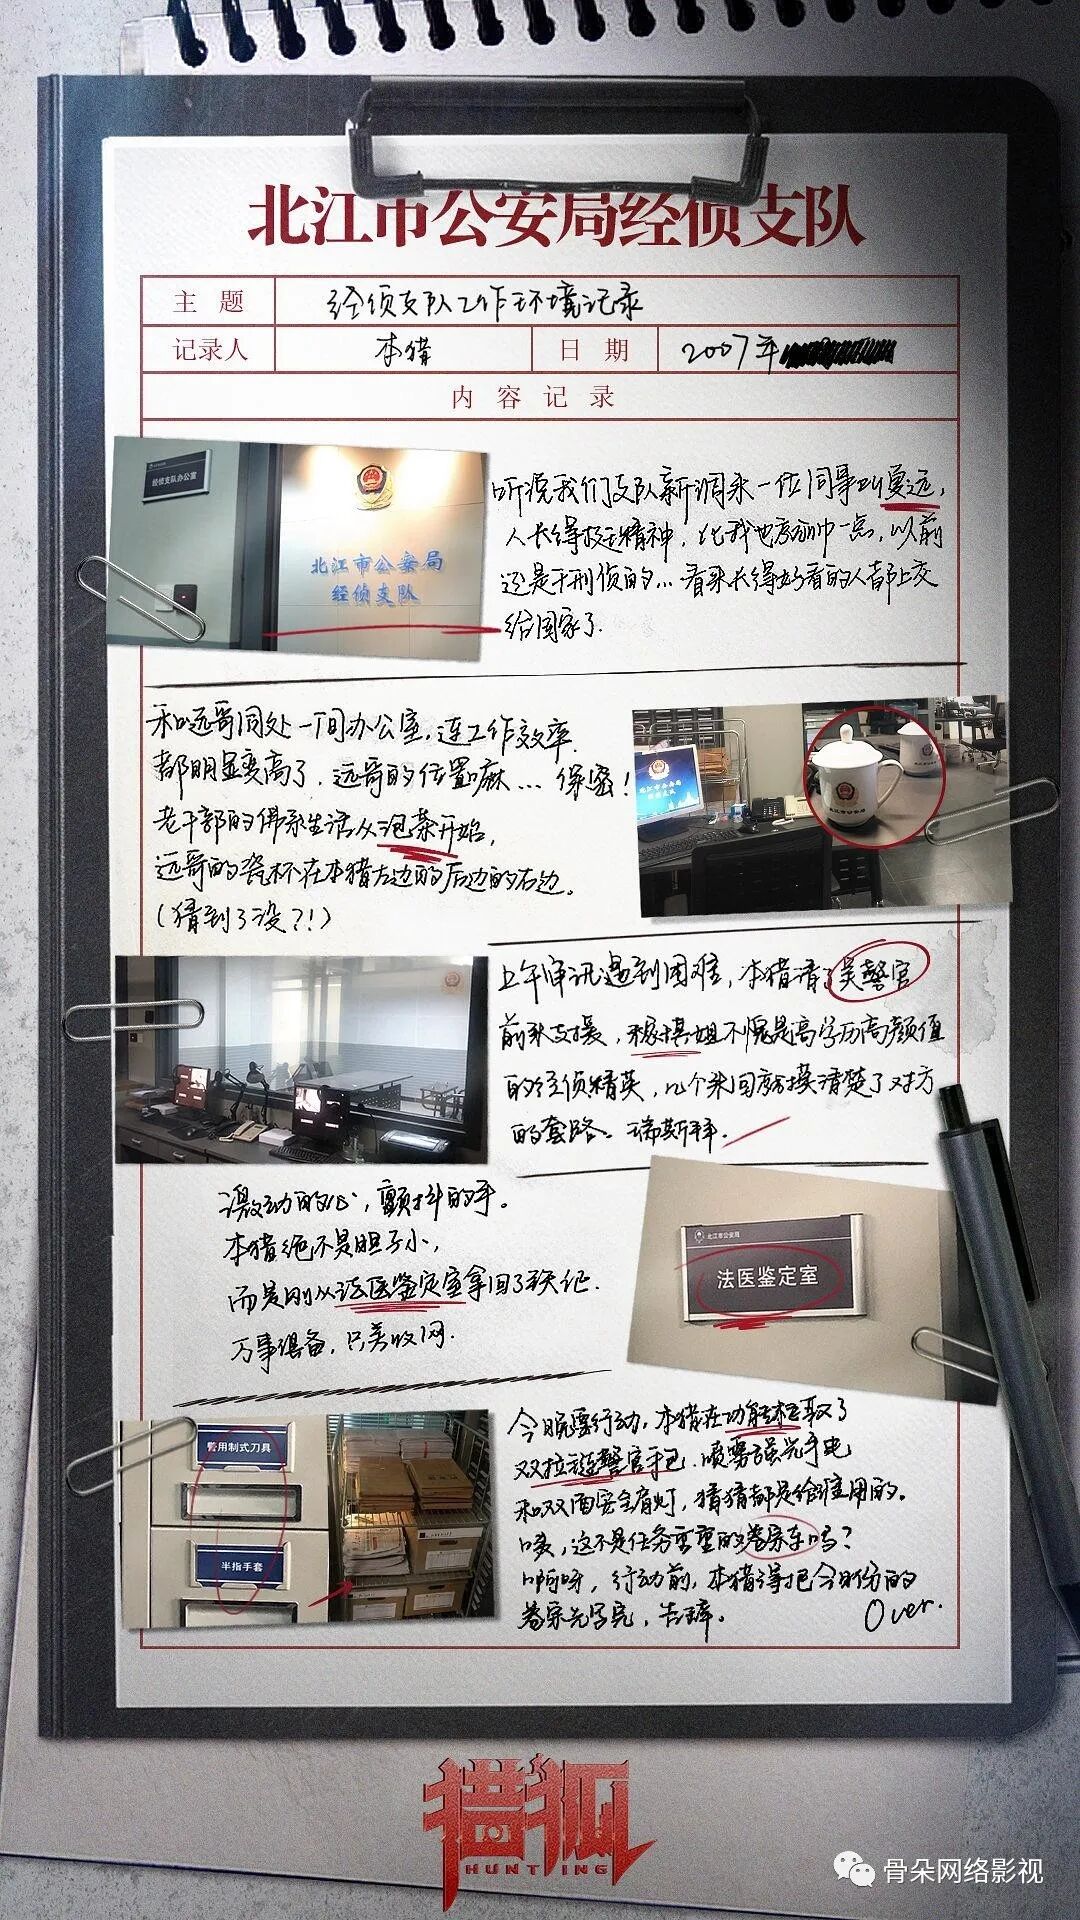 北江市公安局经侦支队
主 题
经侦支队工作环境记录
记录人
本猎
日 期
2007年
内 容 记 录
经侦支队办公室
北江市公安局
经侦支队
听说我们支队新调来一位同事叫夏远,
人长得挺精神,比我也就帅一点,以前
还是干刑侦的...看来长得好看的人都上交
给国家了.
和远哥同处一间办公室,连工作效率
都明显变高了.远哥的位置嘛...保密!
老干部的佛系生活从泡茶开始,
远哥的瓷杯在本猎左边的后边的右边。
(猜到了没?!)
北江市公安局
经侦支队
上午审讯遇到困难,本猎请了吴警官
前来支援,稼琪姐不愧是高学历高颜值
的经侦精英,几个来回就摸清楚了对方
的套路。瑞斯拜.
激动的心,颤抖的手。
本猎绝不是胆子小,
而是刚从法医鉴定室拿回了铁证.
万事俱备,只差收网.
北江市公安局
法医鉴定室
警用制式刀具
半指手套
今晚要行动,本猎在功能柜取了
双拉链警官手包.喷雾强光手电
和双面安全肩灯,猜猜都是给谁用的。
咦,这不是任务繁重的卷宗车吗?
啊呀,行动前,本猎得把今日份的
卷宗先写完,告辞。
Over.
猎狐
HUNTING
骨朵网络影视